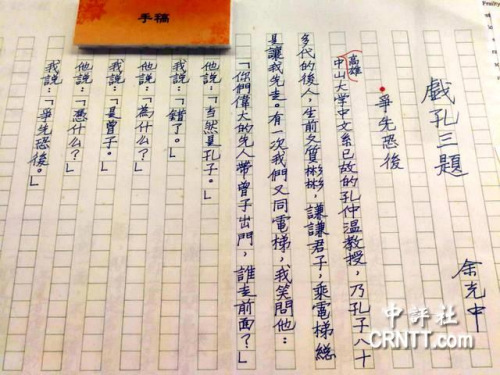 手稿
Fruity
戲孔三題
余光中
爭先恐後
高雄
中山大学中文系已故的孔仲溫教授，乃孔子八十
多代的後人，生前文質彬彬，謙謙君子，乘電梯總
是讓我先走。有一次我們又同電梯，我笑問他：
「你們偉大的先人帶曾子出門，誰走前面？」
他說：「当然是孔子。」
我說：「錯了。」
他說：「為什么？」
我說：「是曾子。」
他說：「憑什么？」
我說：「爭先恐後。」
中評社
CRNTT.com